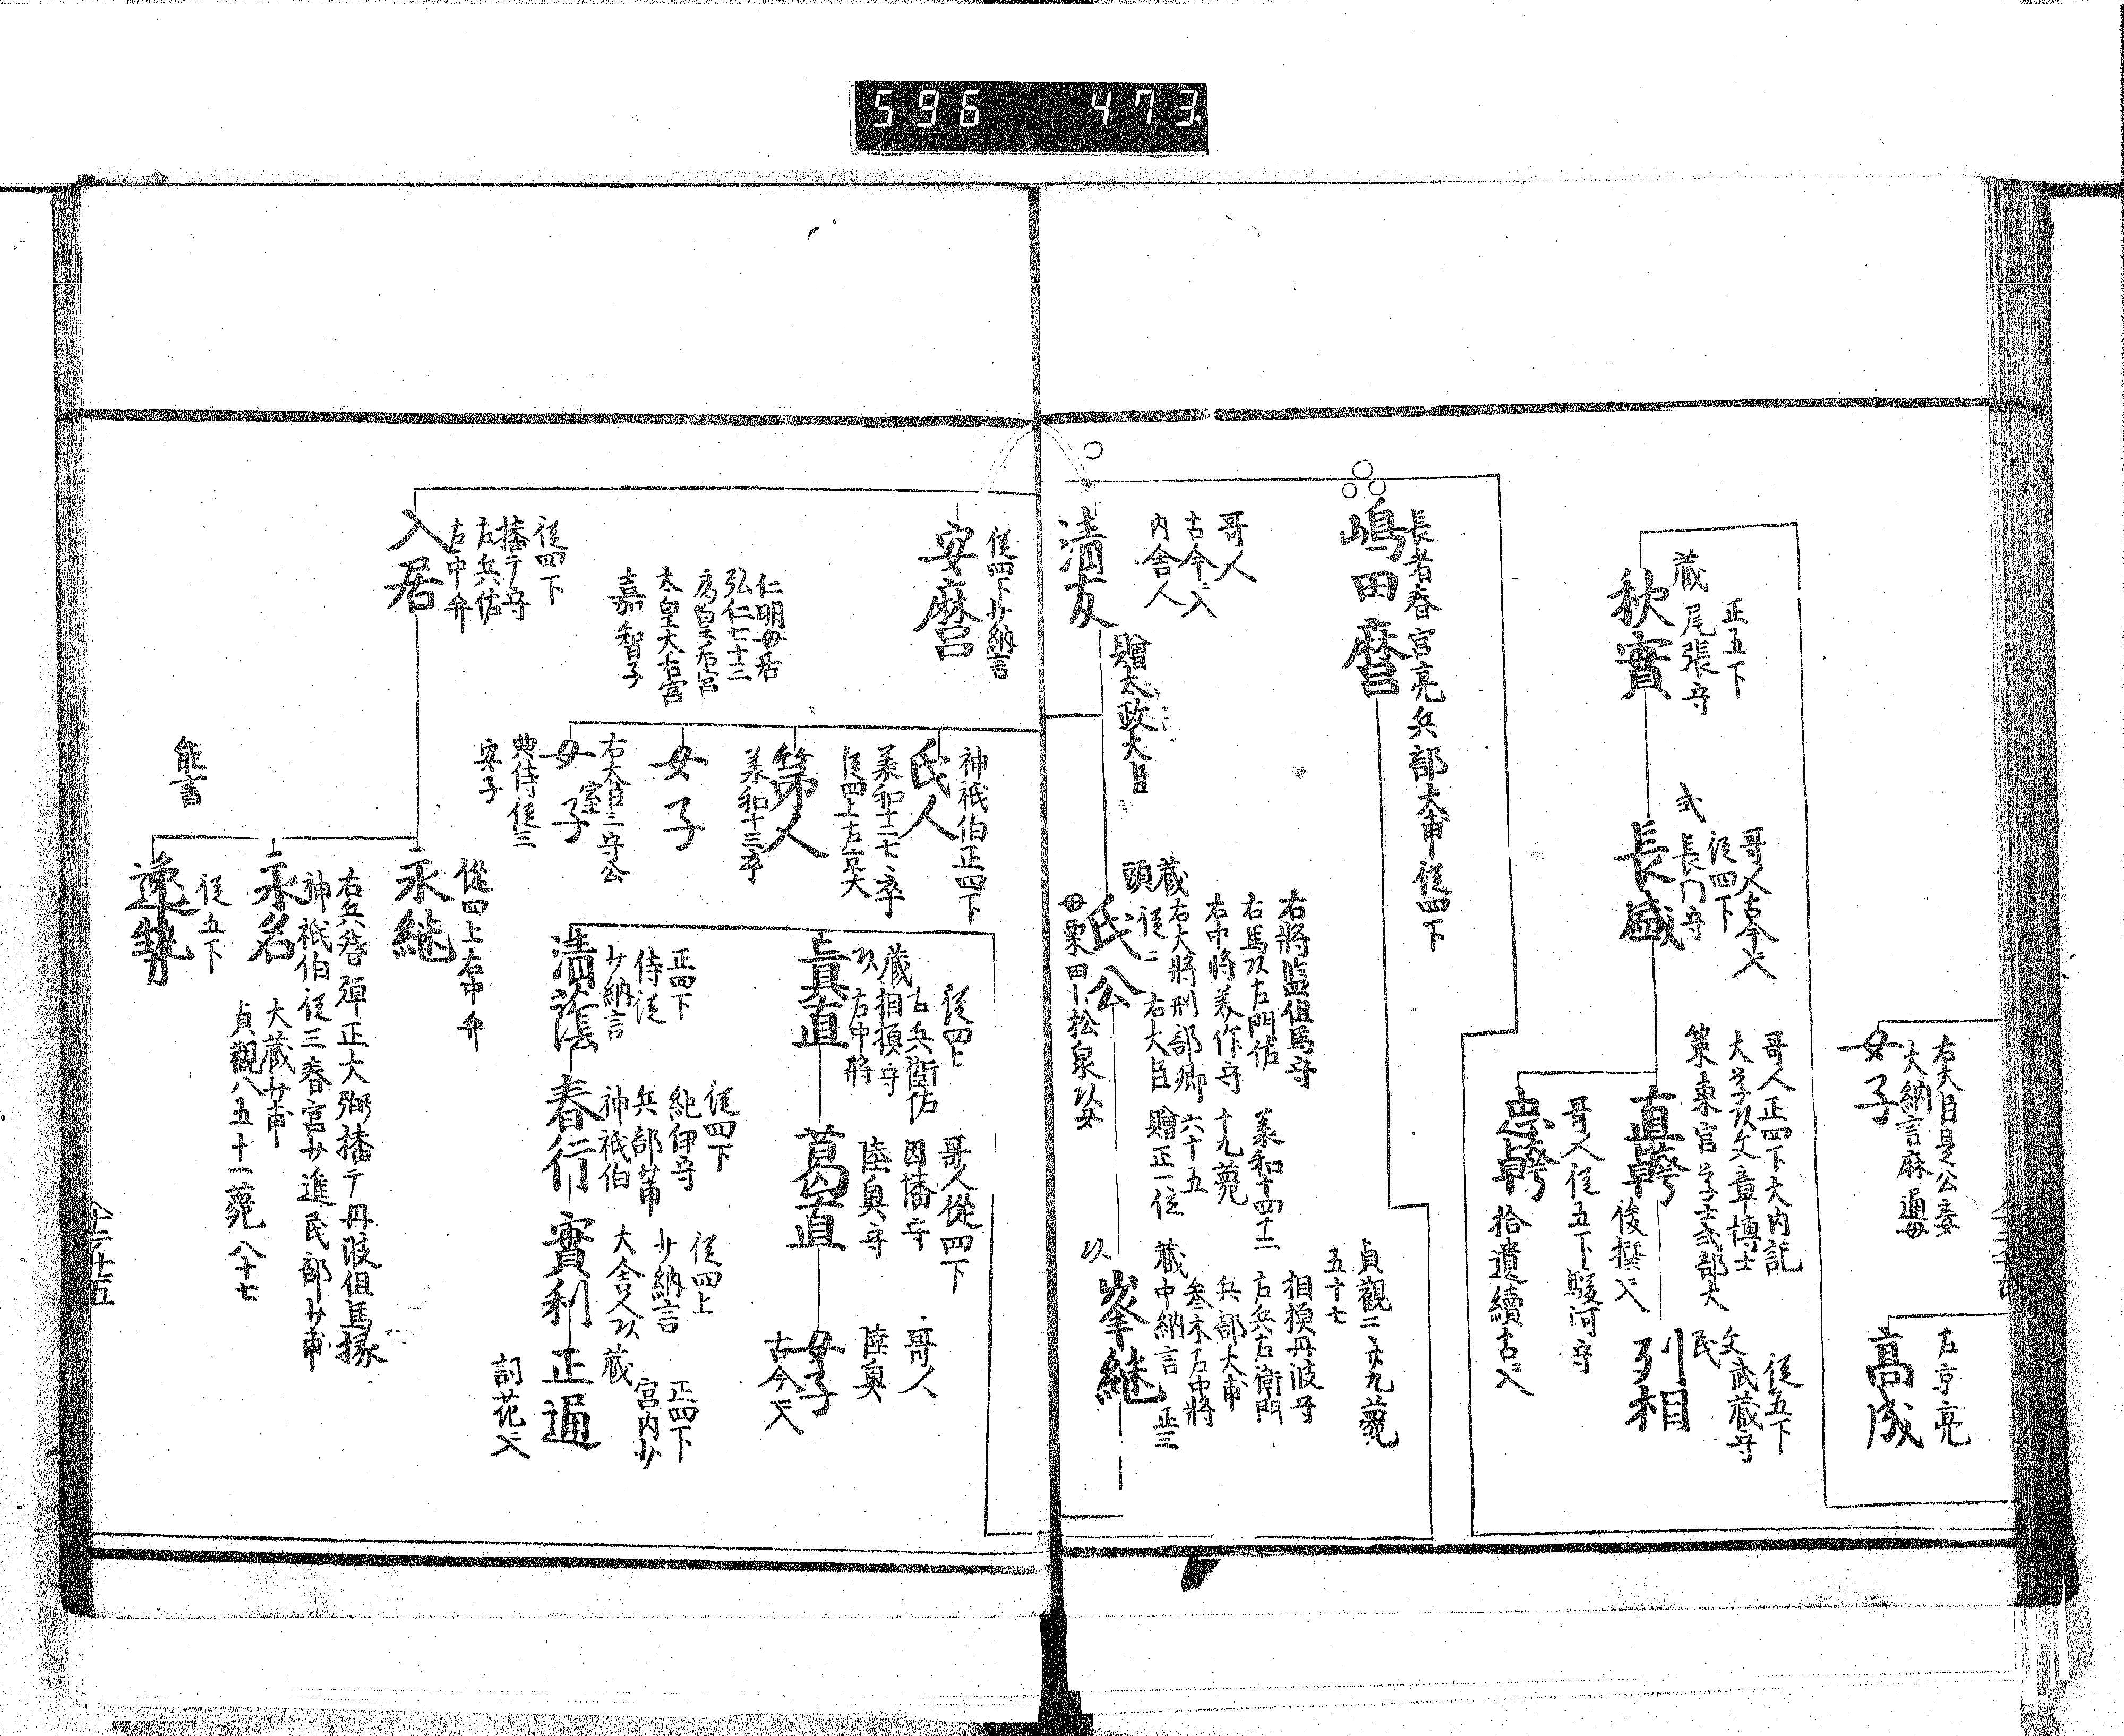 596 473
右大臣是公妾
大納言麻通母
女子
左京亮
高成
正五下
尾張守
蔵
秋實
哥人古今ニ入
従四下
長门守
式
長盛
哥人正四下大内記
大学以文章博士
策東宮学士式部大
直幹
俊撰ニ入
従五下
文武蔵守
民
列相
哥人従五下駿河守
忠幹
拾遺續古ニ入
長者春宮亮兵部大甫従四下
嶋田麿
哥人
古今ニ入
内舎人
清友
贈太政大臣
右将監但馬守
右馬以左門佐
右中将美作守
蔵右大将刑部卿
頭従二 右大臣
承和十四十二
十九薨
六十五
贈正一位
氏公
母粟田小松泉以女
貞観二六九薨
五十七
相損丹波守
左兵左衛門
兵部大甫
参木右中将
蔵中納言 正三
以
峯継
従四下少納言
安麿
神祇伯正四下
氏人
承和十二七卒
従四上左京大
第人
承和十三卒
女子
右大臣三守公
室
女子
典侍従三
安子
仁明母后
弘仁七十三
為皇后宮
太皇大后宮
嘉智子
従四上
右兵衛佐
蔵相損守
以右中将
眞直
哥人従四下
因播守
陸奥守
葛直
哥人
陸奥
女子
古今ニ入
正四下
侍従
少納言
清蔭
従四下
紀伊守
兵部少甫
神祇伯
春行
従四上
少納言
大舎人以蔵
實利
正四下
宮内少
正通
詞花ニ入
従四下
播广守
左兵佐
右中弁
入居
從四上右中弁
永継
右兵督弾正大弼播广丹波但馬掾
神祇伯従三春宮少進民部少甫
永名
大蔵少甫
貞觀八五十一薨八十七
従五下
逸勢
能書